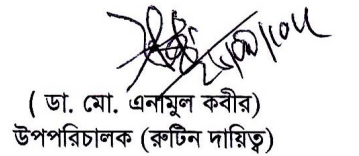 ( ডা. মো. এনামুল কবীর)
উপপরিচালক (রুটিন দায়িত্ব)